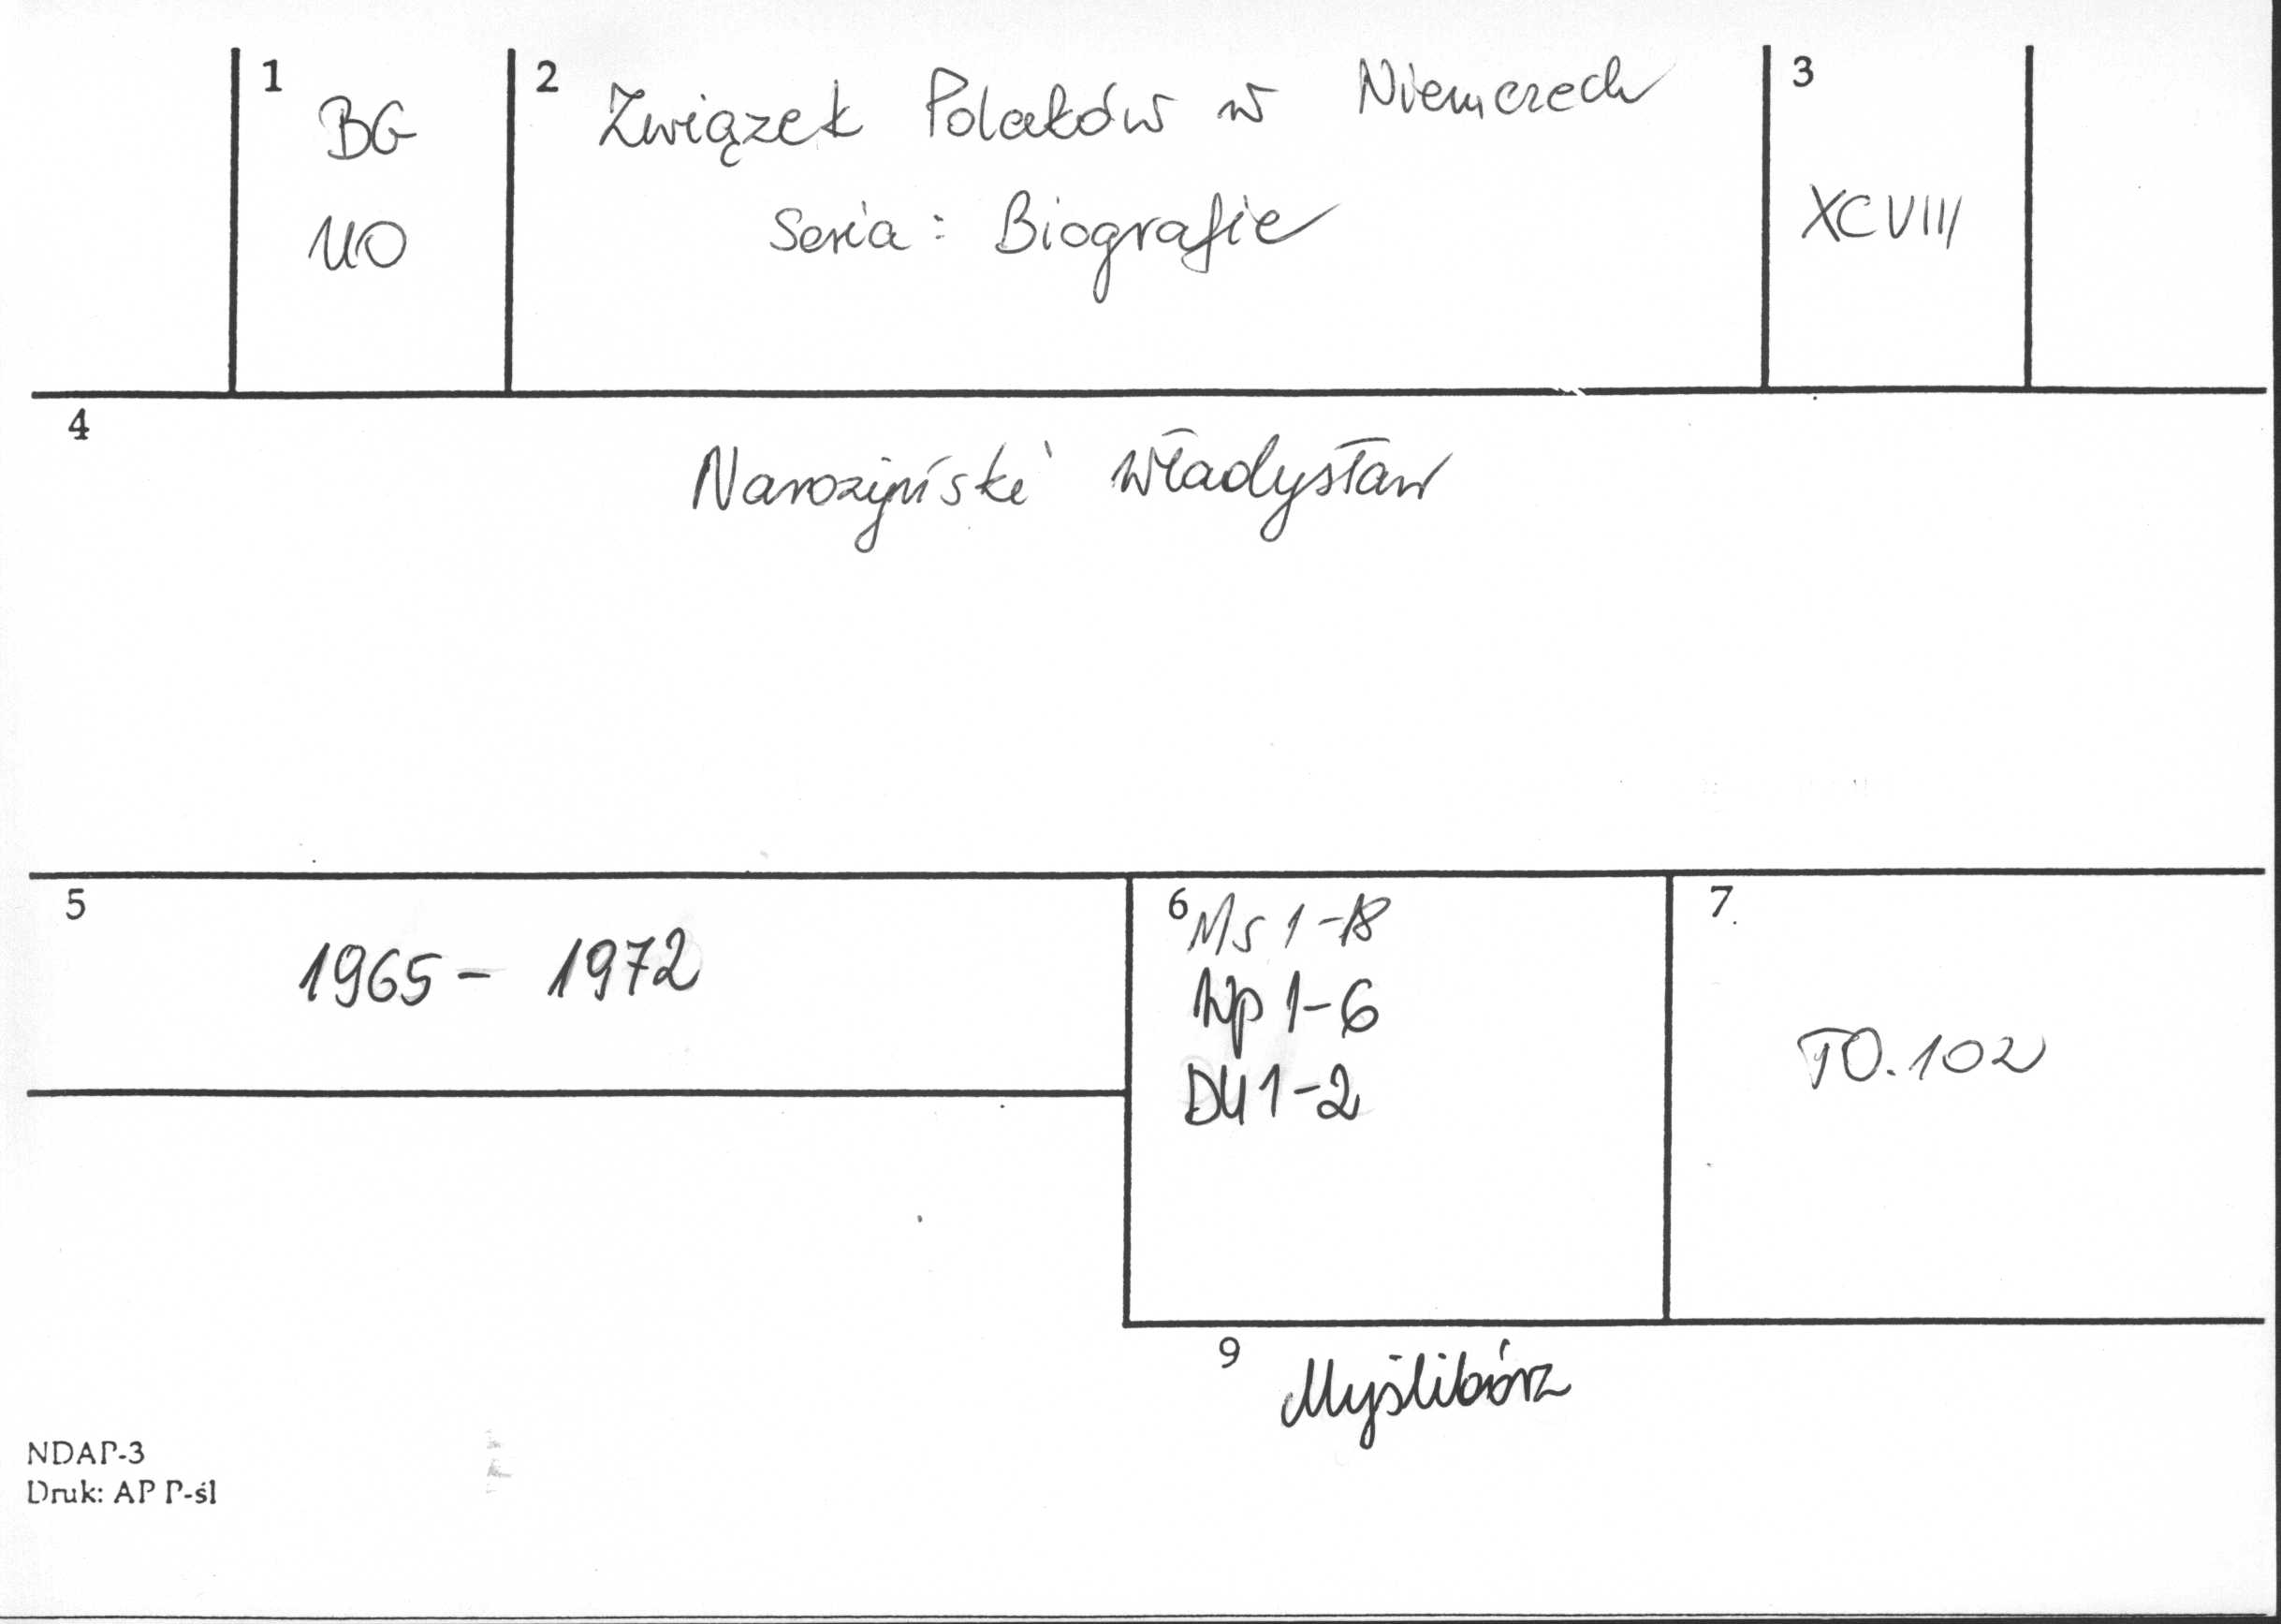 1 BG
UO
2 Związek Polaków w Niemczech
Seria: Biografie
3
XCVIII
4
Narożyński Władysław
5
1965 - 1972
6 Ms 1-18
Np 1-6
DU 1-2
7.
TO.102
9 Myślibórz
NDAP-3
Druk: AP P-śl